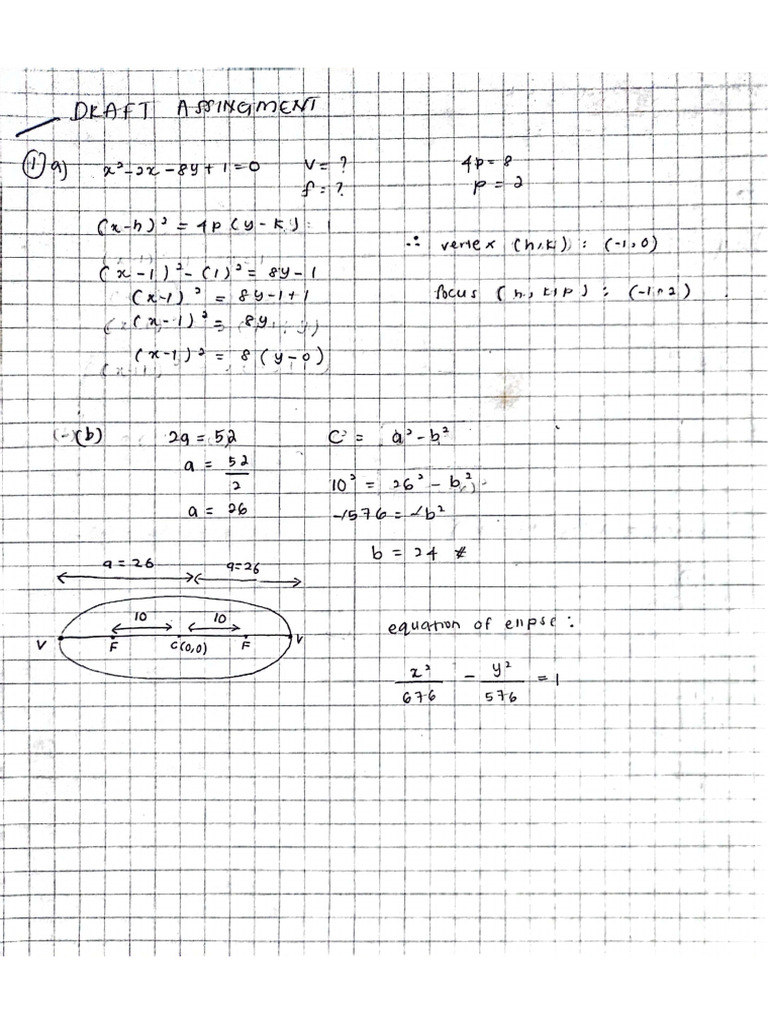 DRAFT ASSINGMENT
① a) x² - 2x - 8y + 1 = 0
v = ?
f = ?
(x-h)² = 4p (y-k)
(x-1)² - (1)² = 8y - 1
(x-1)² = 8y - 1 + 1
(x-1)² = 8y
(x-1)² = 8 (y-0)
4p = 8
p = 2
∴ vertex (h,k) : (-1,0)
focus (h, k+p) : (-1,2)
(b) 2a = 52
a = 52/2
a = 26
c² = a² - b²
10² = 26² - b²
-576 = -b²
b = 24
a = 26 a = 26
10 10
V F C(0,0) F V
equation of elipse :
x²/676 - y²/576 = 1